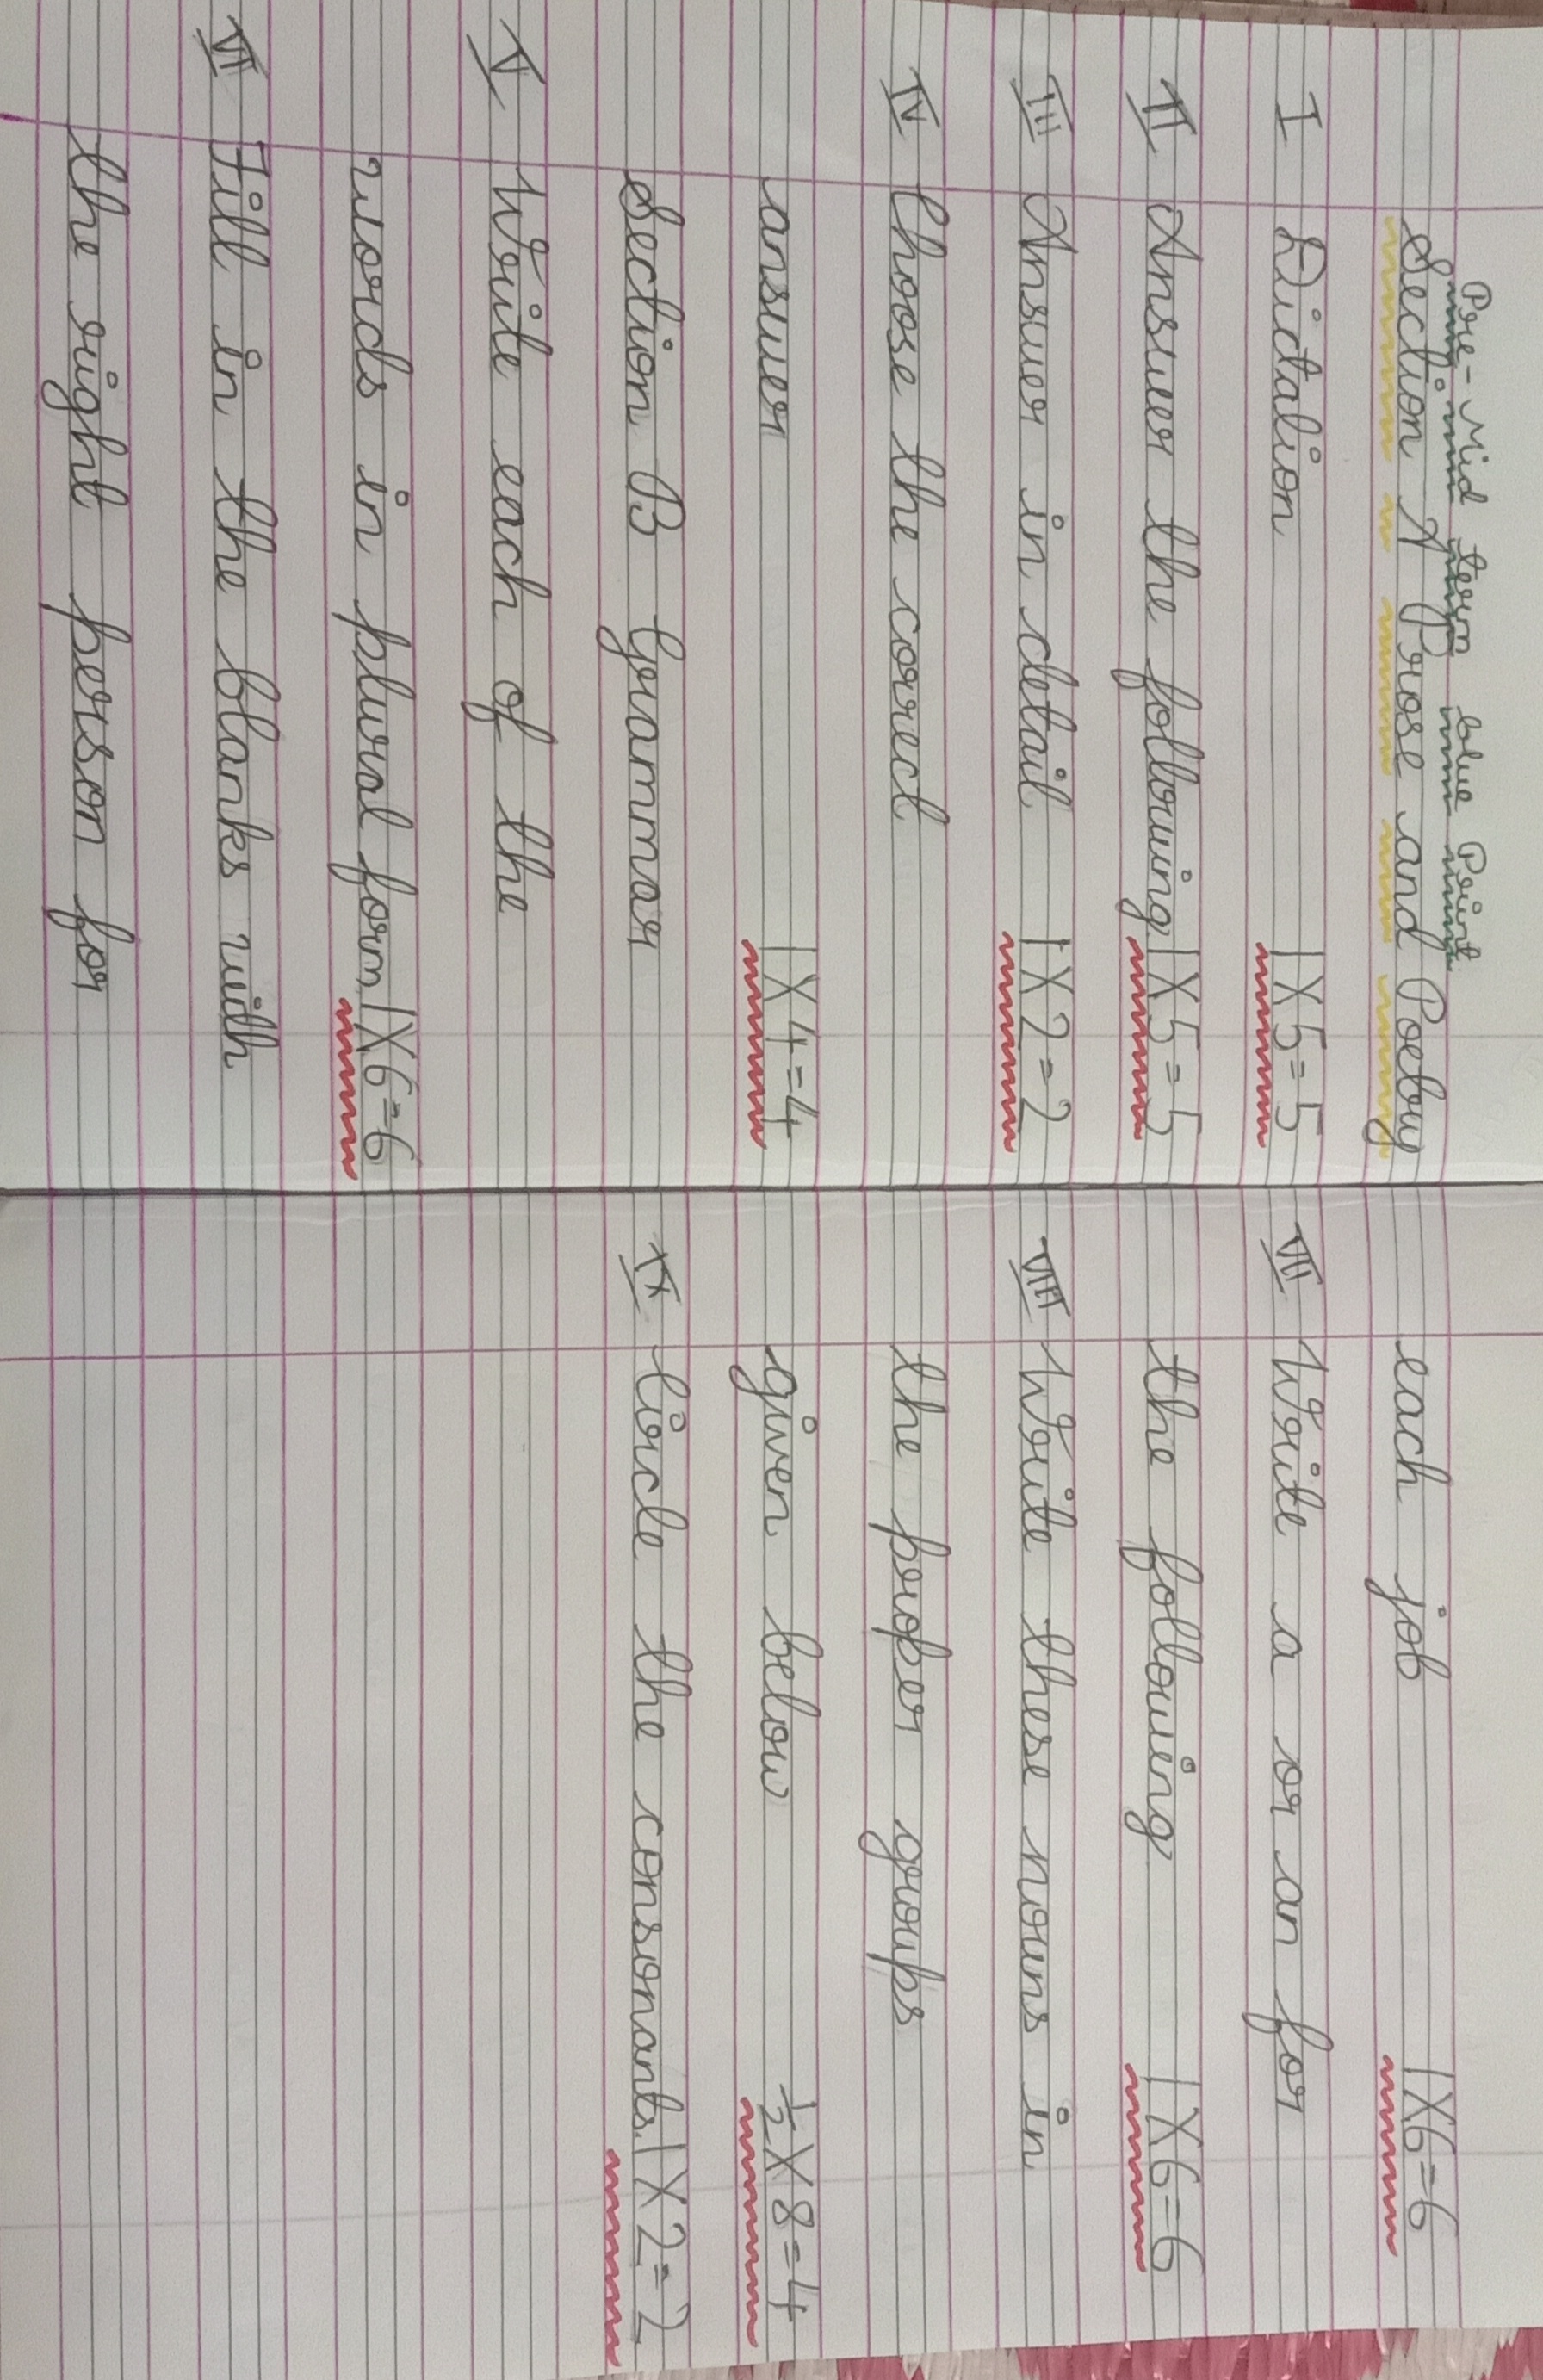 Pre-Mid term blue Print
Section A Prose and Poetry
I Dictation 1X5=5
II Answer the following 1X5=5
III Answer in detail 1X2=2
IV Choose the correct
answer 1X4=4
Section B Grammar
V Write each of the
words in plural form 1X6=6
VI Fill in the blanks with
the right person for
each job 1X6=6
VII Write a or an for
the following 1X6=6
VIII Write these nouns in
the proper groups
given below ½X8=4
IX Circle the consonants 1X2=2